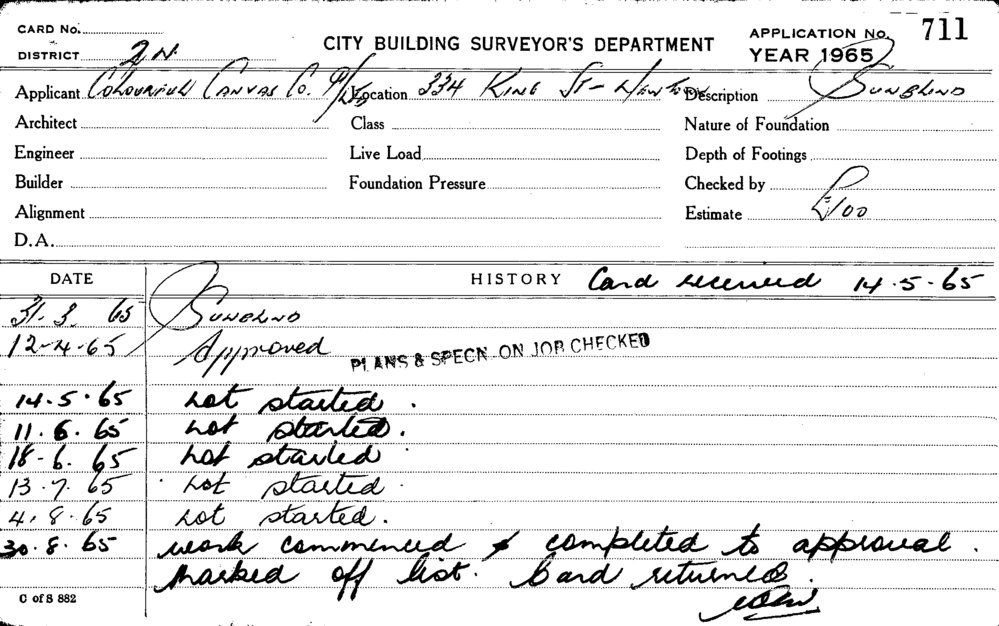 CARD No.
CITY BUILDING SURVEYOR'S DEPARTMENT
APPLICATION No. 711
DISTRICT 2N
YEAR 1965
Applicant Colourful Canvas Co. P/L
Location 334 King St - Newtown
Description Sunblind
Architect
Class
Nature of Foundation
Engineer
Live Load
Depth of Footings
Builder
Foundation Pressure
Checked by
Alignment
Estimate £100
D.A.
DATE
HISTORY Card received 14.5.65
31.3.65 Sunblind
12-4-65 Approved PLANS & SPECN. ON JOB CHECKED
14.5.65 not started.
11.6.65 not started.
18-6.65 not started
13.7.65 not started
4.8.65 not started.
30.8.65 work commenced & completed to approval.
Marked off list. Card returned.
C of S 882